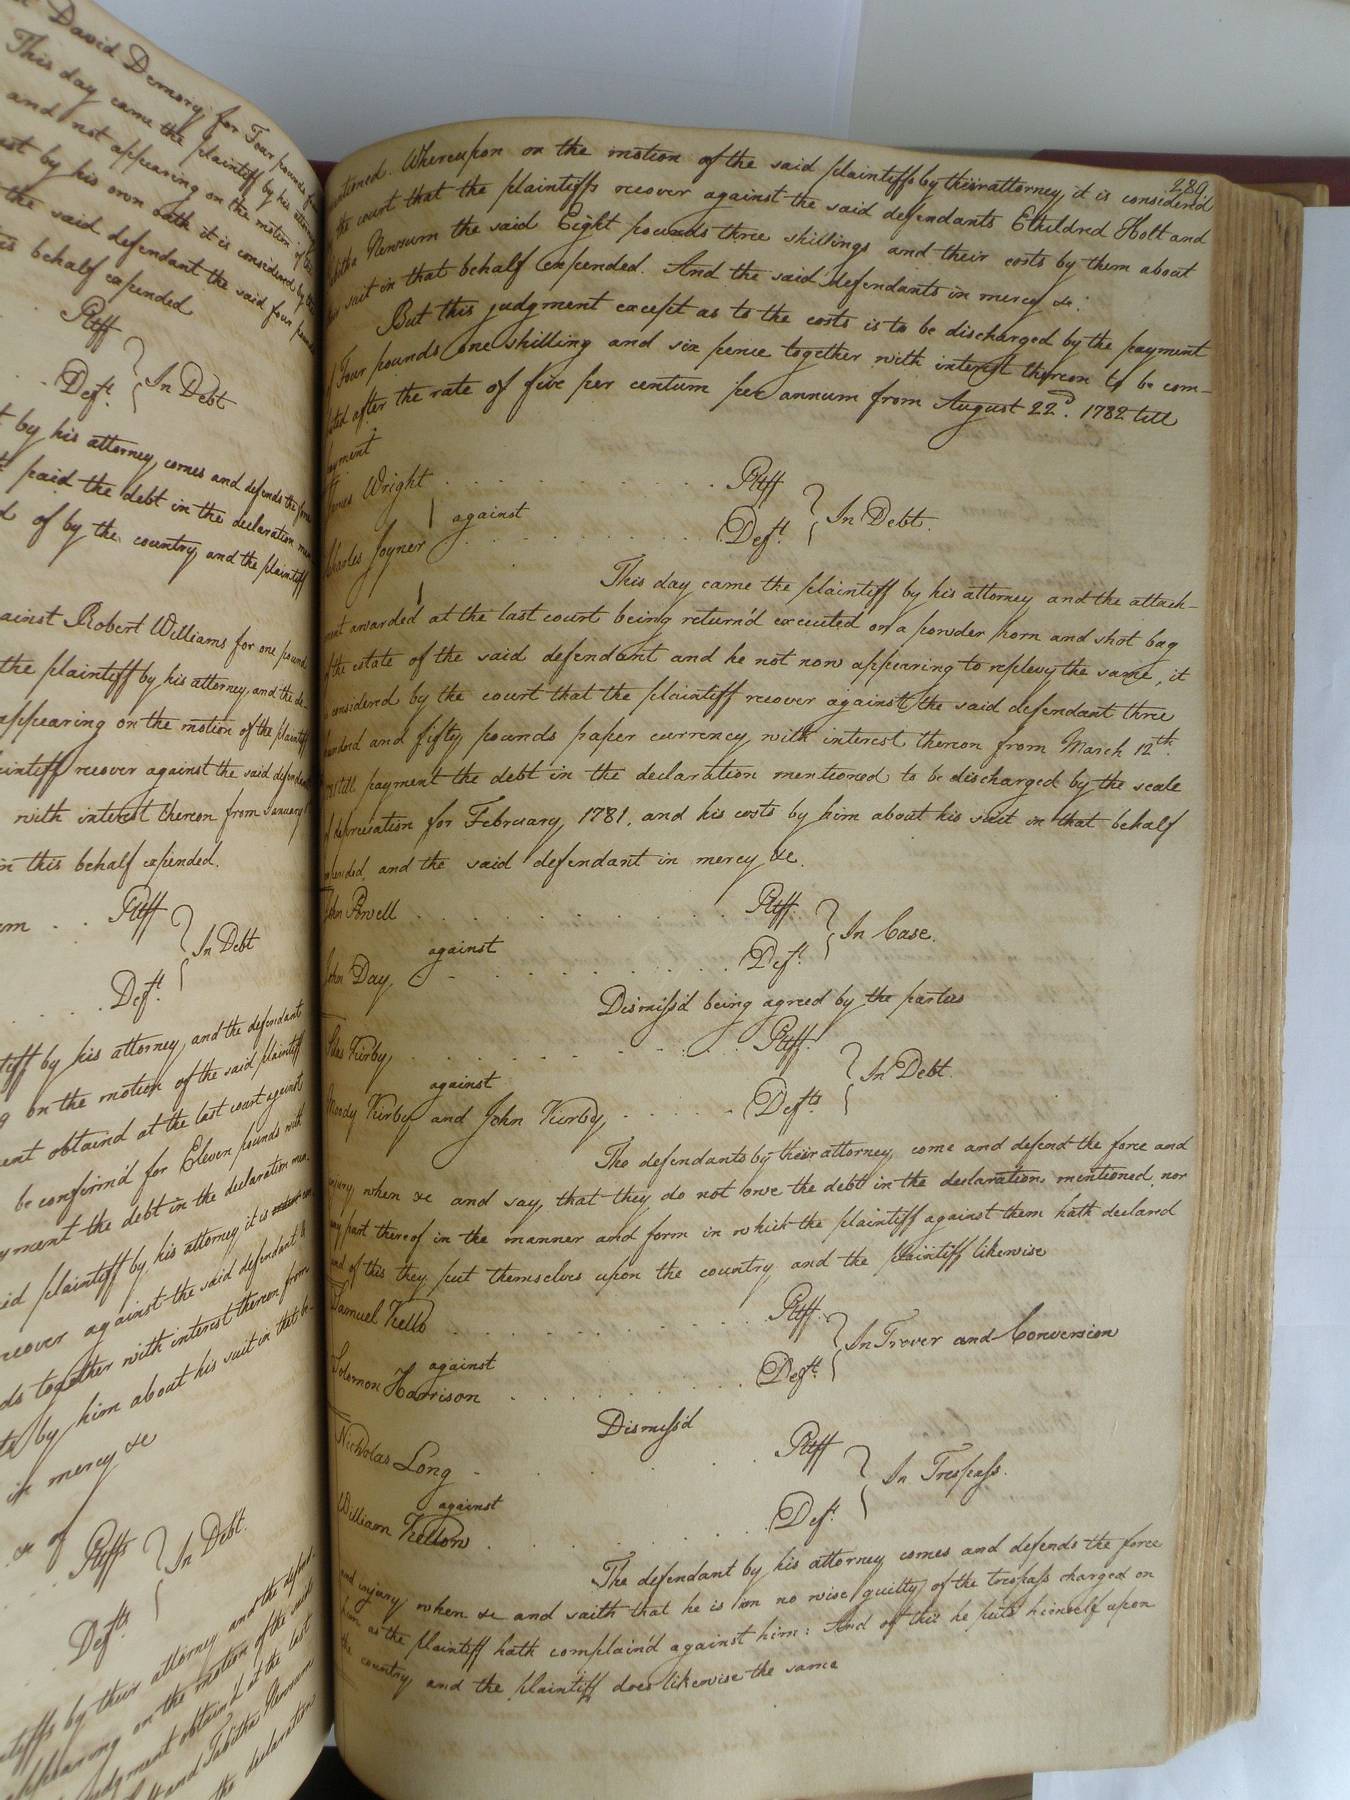 David Demory for Four pounds
This day came the plaintiff by his attorney
and not appearing on the motion of the
by his own oath it is considered by the
the said defendant the said four pounds
behalf expended
Pltff
Deft. } In Debt
by his attorney comes and defends the force
paid the debt in the declaration
of by the country and the plaintiff
against Robert Williams for one pound
the plaintiff by his attorney, and the de-
appearing on the motion of the plaintiff
plaintiff recover against the said defendant
with interest thereon from January
in this behalf expended.
. . Pltff
} In Debt
Deft.
by his attorney, and the defendant
on the motion of the said plaintiff
obtaind at the last court against
be confirm'd for Eleven pounds with
payment the debt in the declaration men-
said plaintiff by his attorney, it is
recover against the said defendant
together with interest thereon from
by him about his suit in that be-
in mercy &c
Pltffs
} In Debt.
Defts.
plaintiffs by their attorney and the defend-
appearing on the motion of the said
judgment obtain'd at the last
and Tabitha Newsum
the declaration
289
mentioned. Whereupon on the motion of the said plaintiffs by their attorney, it is consider'd
the court that the plaintiffs recover against the said defendants Ethildred Holt and
Tabitha Newsum the said Eight pounds three shillings and their costs by them about
suit in that behalf expended. And the said defendants in mercy &c:
But this judgment except as to the costs is to be discharged by the payment
of Four pounds one shilling and six pence together with interest thereon to be com-
puted after the rate of five per centum per annum from August 22d. 1782 till
payment
James Wright . . . . . . . . . Pltff
against } In Debt.
Charles Joyner . . . . . . . . Deft.
This day came the plaintiff by his attorney and the attach-
ment awarded at the last court being return'd executed on a powder horn and shot bag
of the estate of the said defendant and he not now appearing to replevy the same, it
considered by the court that the plaintiff recover against the said defendant three
hundred and fifty pounds paper currency with interest thereon from March 12th.
till payment the debt in the declaration mentioned to be discharged by the scale
of depreciation for February 1781. and his costs by him about his suit in that behalf
expended, and the said defendant in mercy &c.
John Powell . . . . . . . . . . Pltff.
against } In Case.
John Day, . - . . . . . . . . Deft.
Dismiss'd being agreed by the parties
Silas Kirby, . . . . . . . . . . Pltff.
against } In Debt.
Moody Kirby and John Kirby, . . . . . Defts.
The defendants by their attorney come and defend the force and
injury, when &c and say, that they do not owe the debt in the declaration mentioned, nor
any part thereof in the manner and form in which the plaintiff against them hath declared
and of this they put themselves upon the country and the plaintiff likewise
Samuel Kello . . . . . . . . . . Pltff.
against } In Trover and Conversion
Solomon Harrison . . . . . . . . Deft.
Dismiss'd
Nicholas Long - . . . . Pltff
against } In Trespass.
William Kellow . . . . . . Deft.
The defendant by his attorney comes and defends the force
and injury when &c and saith that he is in no wise guilty of the trespass charged on
him as the plaintiff hath complain'd against him: And of this he puts himself upon
the country, and the plaintiff does likewise the same